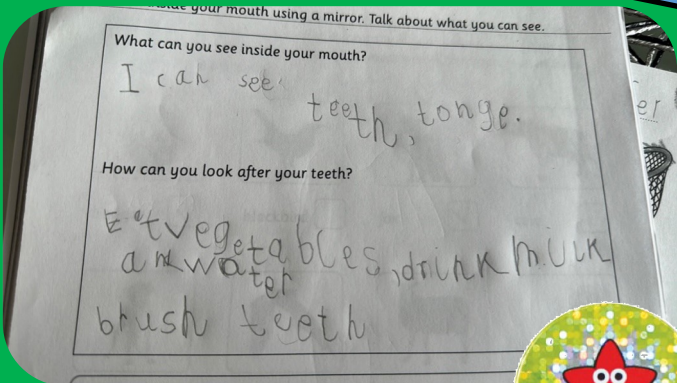 your mouth using a mirror. Talk about what you can see.
What can you see inside your mouth?
I can see
teeth, tonge.
How can you look after your teeth?
Eat vegetables, drink milk
and water
brush teeth
er